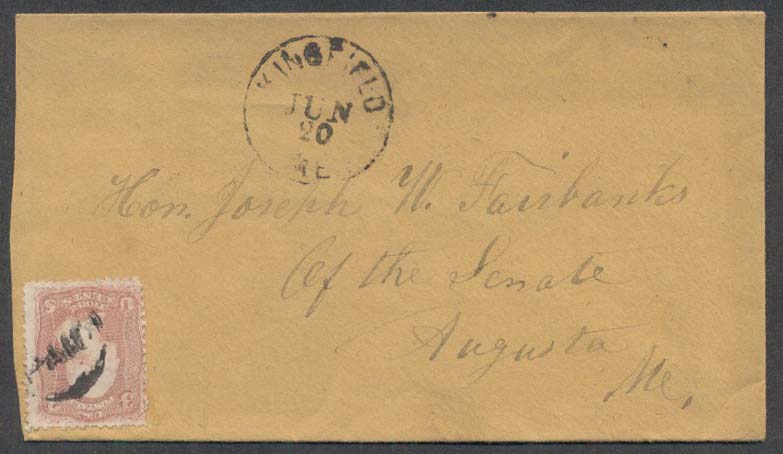 KINGFIELD
JUN
20
ME
Hon. Joseph W. Fairbanks
Of the Senate
Augusta
Me,
U S
3 3
U.S. POSTAGE
THREE CENTS